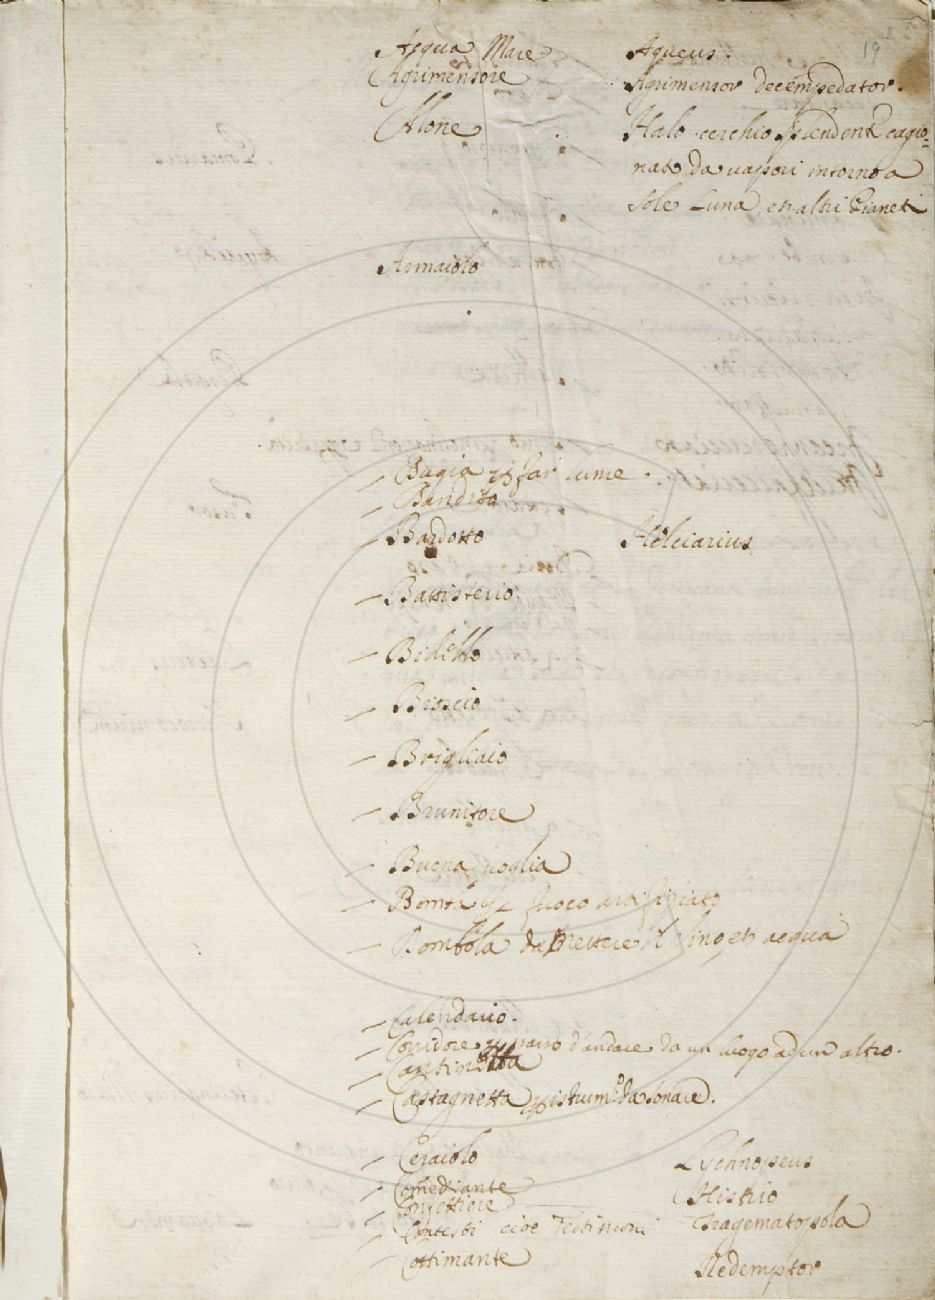 19
Acqua Mare Aqueus.
Agrimensore Agrimensor decempedator.
Alone Halo cerchio splendente cagio=
nato da vapori intorno a
Sole Luna et altri Pianeti
Armaiolo
Bugia per far lume.
Bandita
Bardotto Helciarius
Battisterio
Bidello
Brigliaio
Brunitore
Buona voglia
fuoco artifiziato
Bombola da mettere il vino et acqua
Calendario.
Corridore per passo d'andare da un luogo ad un altro.
Castagnetta per istrum.º da sonare.
Ceraiolo Lychnopeus
Comediante Histrio
Confettiere Tragematopola
Contesti cioe Testimoni
Cottimante Redemptor